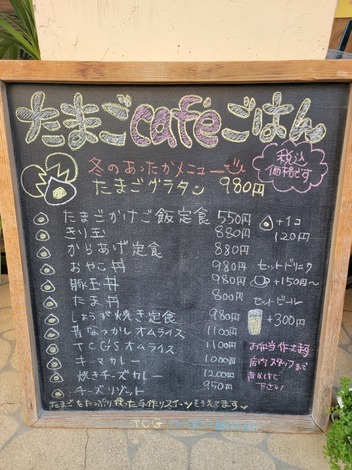 たまごcaféごはん
冬のあったかメニュー
たまごグラタン 980円
税込
価格です
たまごかけご飯定食 550円
きり玉 880円
からあげ定食 880円
おやこ丼 980円
豚玉丼 980円
たま丼 800円
しょうが焼き定食 980円
昔なつかしオムライス 1100円
TCGSオムライス 1100円
キーマカレー 1000円
焼きチーズカレー 1200円
チーズリゾット 950円
+1コ
120円
セットドリンク
+150円〜
セットビール
+300円
お弁当作れます
店内スタッフまで
下さい!
たまごをたっぷり使った手作りスイーツもあります
TCG